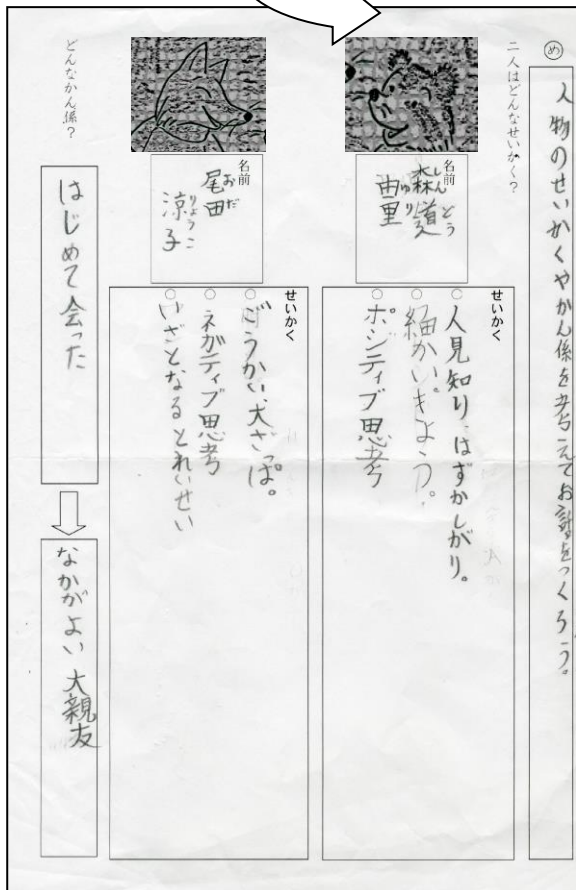 め
人物のせいかくやかん係を考えてお話をつくろう。
二人はどんなせいかく？
名前
しんどう
森道
ゆり
由里
せいかく
○人見知り、はずかしがり。
○細かい。きよう。
○ポジティブ思考
名前
おだ
尾田
りょうこ
涼子
せいかく
○ごうかい、大ざっぱ。
○ネガティブ思考
○いざとなるとれいせい
どんなかん係？
はじめて会った
なかがよい大親友